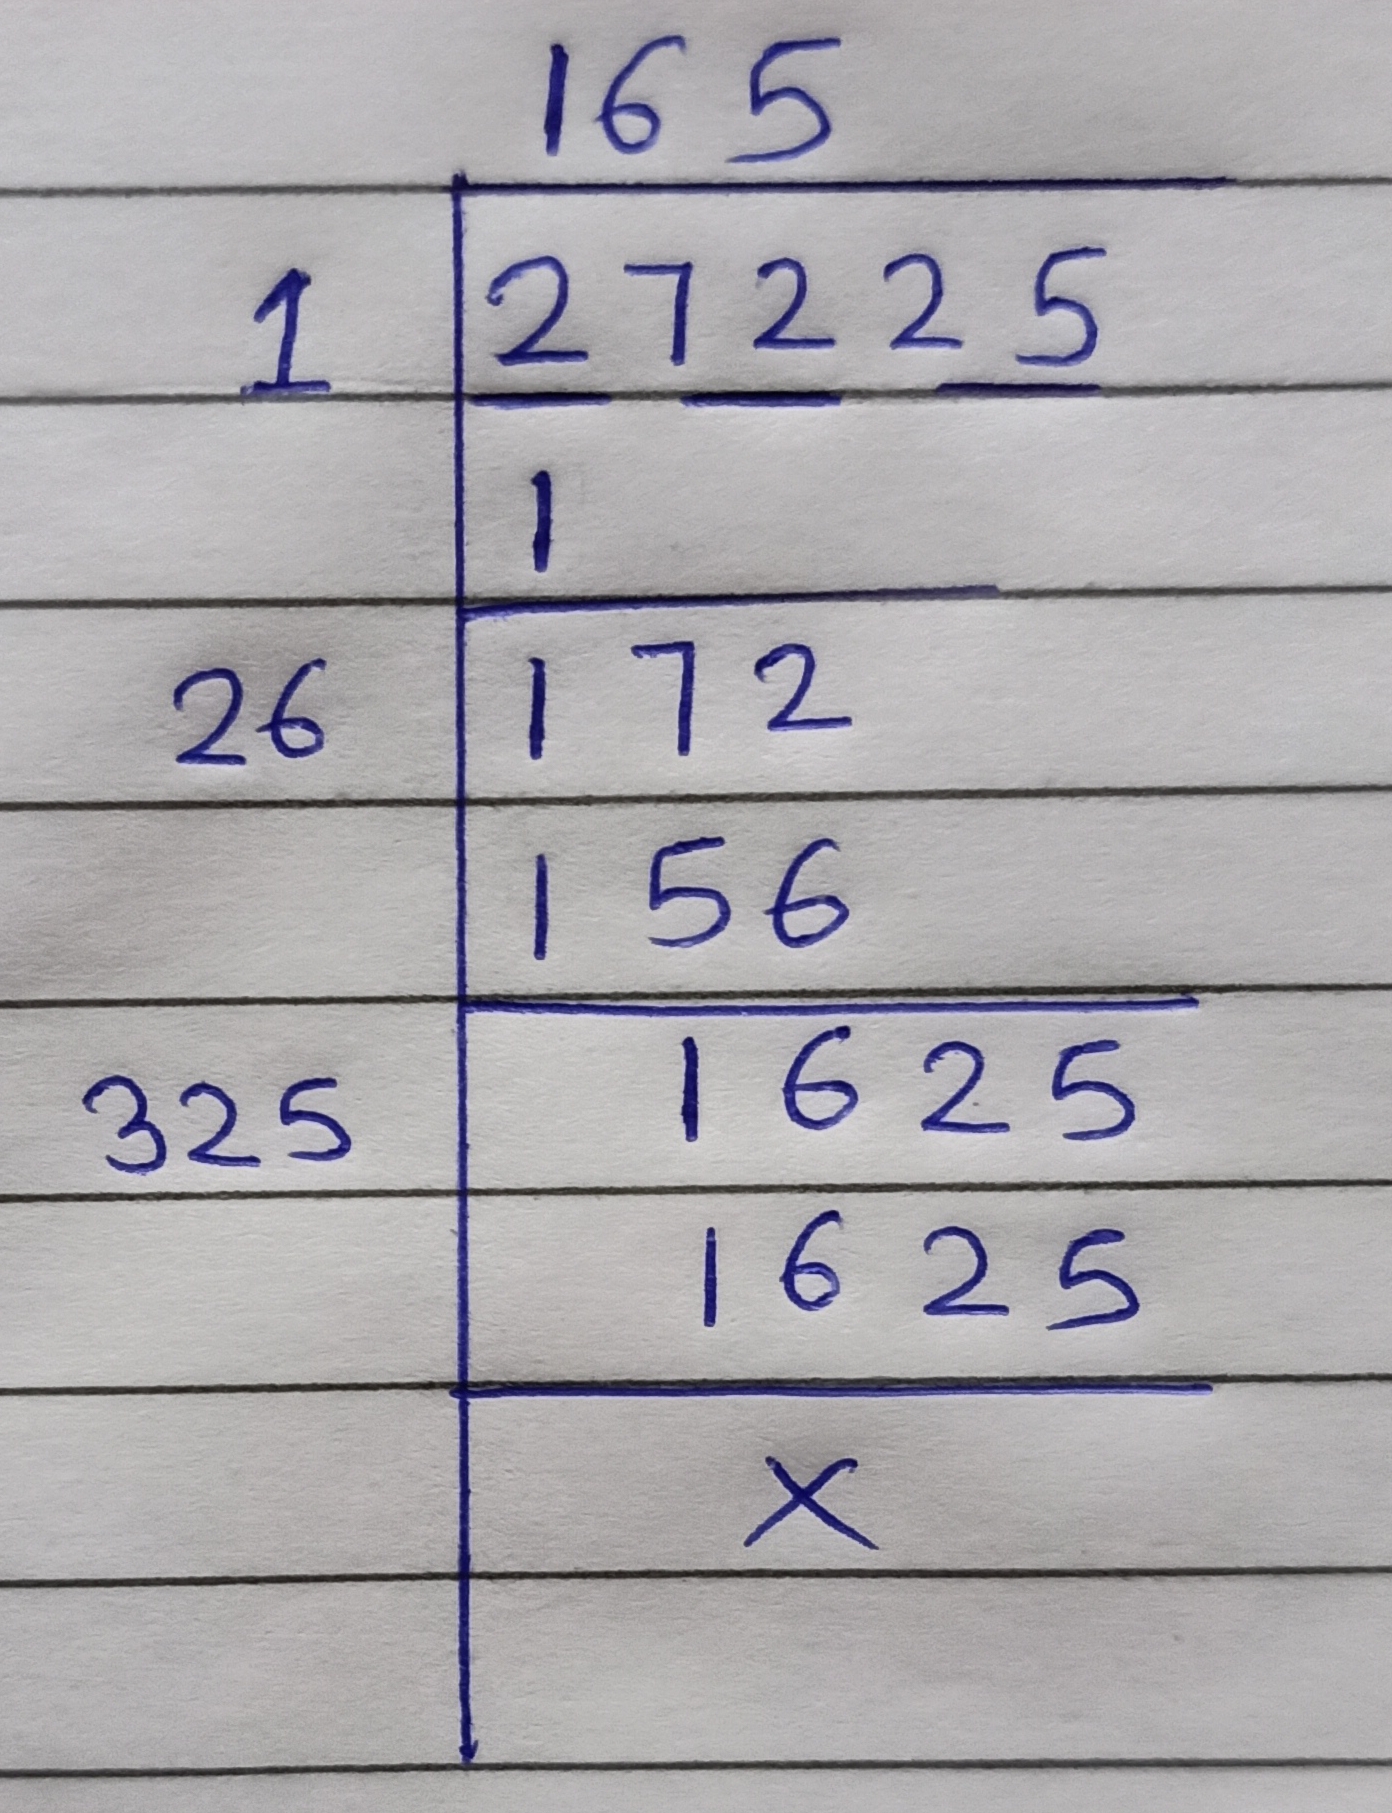 165
1 27225
1
26 172
156
325 1625
1625
x